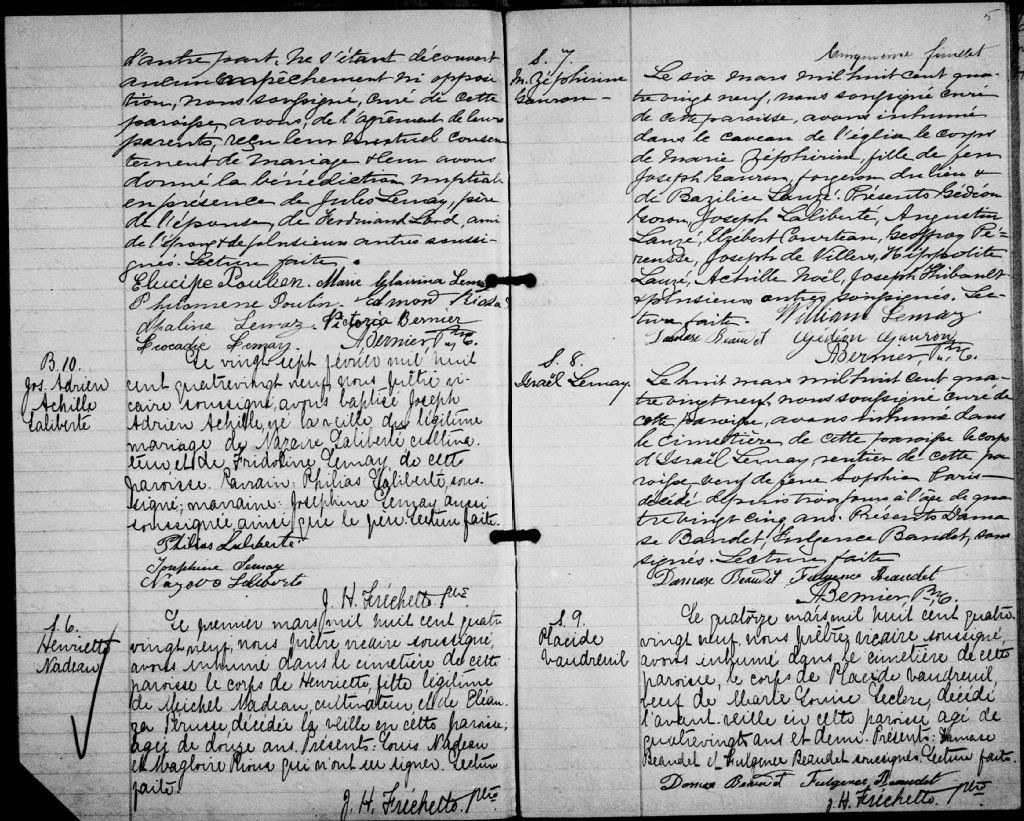 d'autre part. ne s'étant découvert
aucun empêchement ni opposi
tion, nous soussigné, curé de cette
paroisse, avons, de l'agrément de leurs
parents, reçu leur mutuel consen
tement de mariage & leur avons
donné la bénédiction nuptiale
en présence de Jules Lemay, père
de l'épouse, de Ferdinand Lord, ami
de l'époux & de plusieurs autres soussi-
gnés. Lecture faite.
Elucipe Poulin. Marie
Philomene Poulin. Edmond
Lemay. Victoria Bernier
Leocadie Lemay. A Bernier Ptre C.
B. 10.
Jos. Adrien
Achille
Laliberté
Le vingt sept février mil huit
cent quatrevingt neuf, nous prêtre vi
caire soussigné, avons baptisé Joseph
Adrien Achille, né la veille du légitime
mariage de Nazaire Laliberté cultiva
teur, et de Fridoline Lemay de cette
paroisse. Parrain: Philias Laliberté, sous
signé; marraine: Joséphine Lemay aussi
soussignée, ainsi que le père. Lecture faite.
Philias Laliberté
Josephine Lemay
Laliberté
J. H. Fréchette. Ptre
S. 6.
Henriette
Nadeau
Le premier mars mil huit cent quatre
vingt neuf, nous prêtre vicaire soussigné,
avons inhumé dans le cimetière de cette
paroisse le corps de Henriette, fille légitime
de Michel Nadeau, cultivateur, et de Eléau-
za Perusse, décédée la veille en cette paroisse,
agée de douze ans. Présents: Louis Nadeau
et Magloire Rioux qui n'ont su signer. Lecture
faite.
J. H. Fréchette. Ptre
5
feuillet
S. 7.
M. Zéphirine
Gauron
Le six mars mil huit cent qua
tre vingt neuf, nous soussigné curé
de cette paroisse, avons inhumé
dans le caveau de l'église le corps
de Marie Zéphirine, fille de feu
Joseph Gauron, forgeron du lieu &
de Bazilice Lauzé. Présents Gédéon
Goron, Joseph Laliberté, Augustin
Lauzé, Elzébert Courteau, Geoffroy Pé-
russe, Joseph de Villers, Hippolite
Lauzé, Achille Noël, Joseph Thibault
& plusieurs autres soussignés. Lec-
ture faite. William Lemay
Damase Beaudet Gédéon Gauron
A Bernier, Ptre C.
S. 8.
Israël Lemay.
Le huit mars mil huit cent qua
tre vingt neuf, nous soussigné curé de
cette paroisse, avons inhumé dans
le cimetière de cette paroisse le corps
d'Israël Lemay, rentier de cette pa
roisse, veuf de feue Sophie Paris
décédé depuis trois jours à l'âge de qua
tre vingt cinq ans. Présents Dama
se Baudet, Fulgence Baudet, sous
signés. Lecture faite
Damase Beaudet Fulgence Beaudet
A Bernier, Ptre C.
S. 9.
Placide
Vaudreuil
Le quatorze mars mil huit cent quatre
vingt neuf, nous prêtre vicaire soussigné,
avons inhumé dans le cimetière de cette
paroisse, le corps de Placide Vaudreuil,
veuf de Marie Louise Leclerc, décédé
l'avant veille en cette paroisse agé de
quatrevingts ans et demi. Présents: Damase
Beaudet et Fulgence Beaudet soussignés. Lecture faite.
Damase Beaudet Fulgence Beaudet
J. H. Fréchette. Ptre